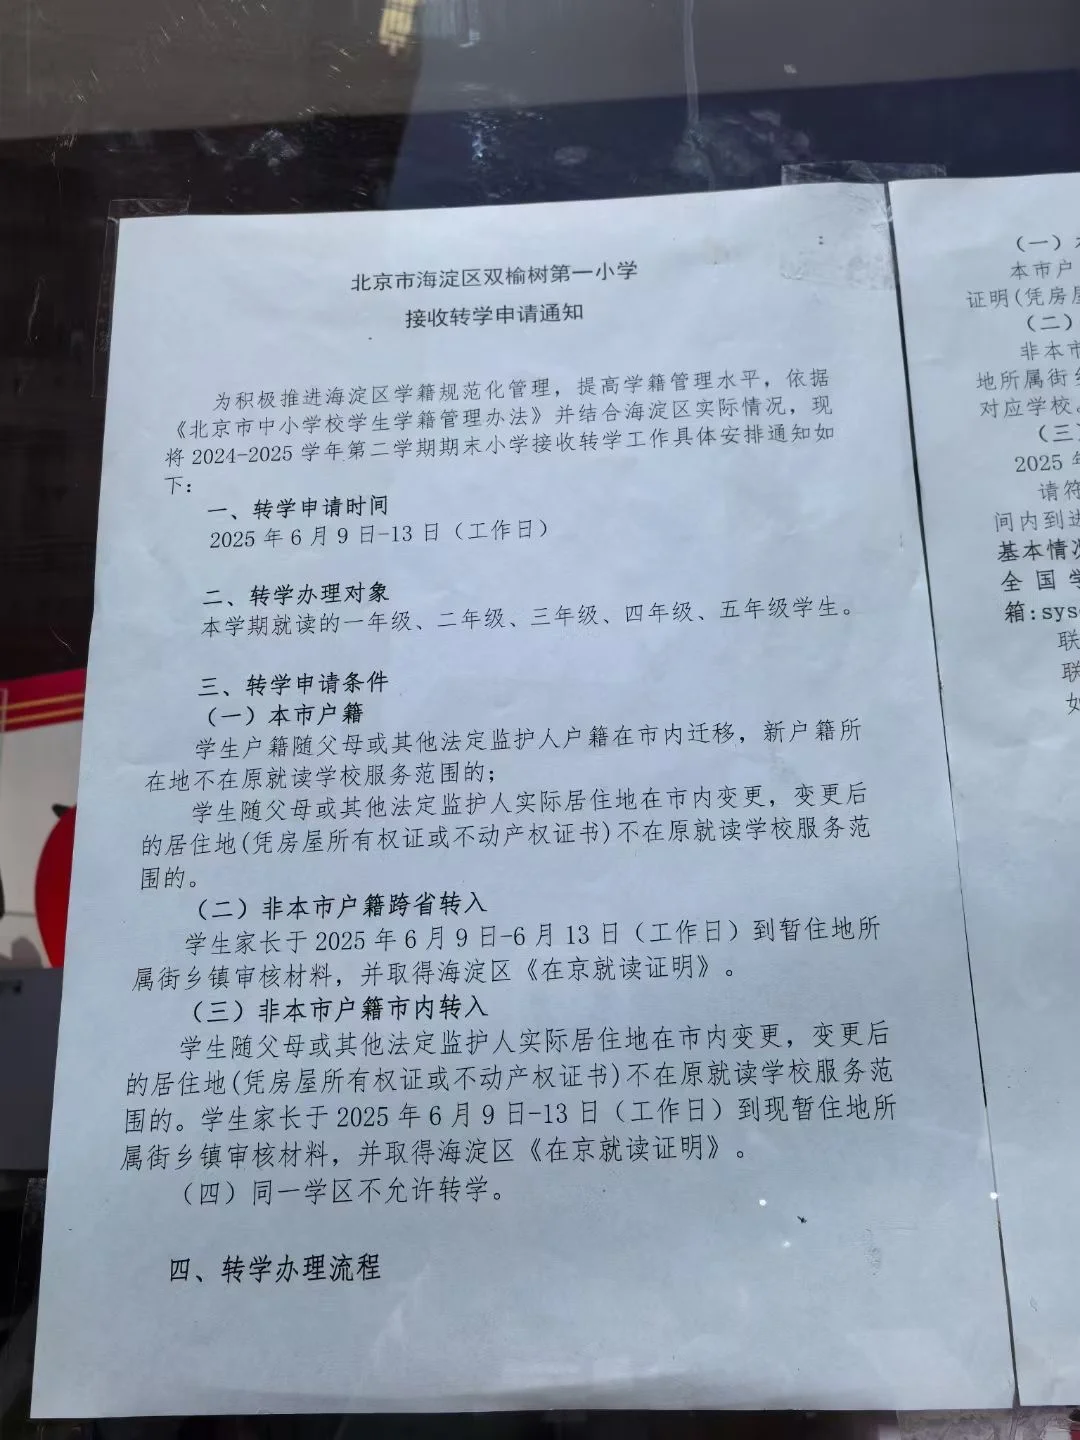 北京市海淀区双榆树第一小学
接收转学申请通知
为积极推进海淀区学籍规范化管理，提高学籍管理水平，依据
《北京市中小学校学生学籍管理办法》并结合海淀区实际情况，现
将 2024-2025 学年第二学期期末小学接收转学工作具体安排通知如
下：
一、转学申请时间
2025 年 6 月 9 日-13 日（工作日）
二、转学办理对象
本学期就读的一年级、二年级、三年级、四年级、五年级学生。
三、转学申请条件
（一）本市户籍
学生户籍随父母或其他法定监护人户籍在市内迁移，新户籍所
在地不在原就读学校服务范围的；
学生随父母或其他法定监护人实际居住地在市内变更，变更后
的居住地(凭房屋所有权证或不动产权证书)不在原就读学校服务范
围的。
（二）非本市户籍跨省转入
学生家长于 2025 年 6 月 9 日-6 月 13 日（工作日）到暂住地所
属街乡镇审核材料，并取得海淀区《在京就读证明》。
（三）非本市户籍市内转入
学生随父母或其他法定监护人实际居住地在市内变更，变更后
的居住地(凭房屋所有权证或不动产权证书)不在原就读学校服务范
围的。学生家长于 2025 年 6 月 9 日-13 日（工作日）到现暂住地所
属街乡镇审核材料，并取得海淀区《在京就读证明》。
（四）同一学区不允许转学。
四、转学办理流程
（一）
本市户
证明(凭房
（二）
非本市
地所属街
对应学校。
（三）
2025
请符
间内到
基本情
全国
箱:sys
联
联
如